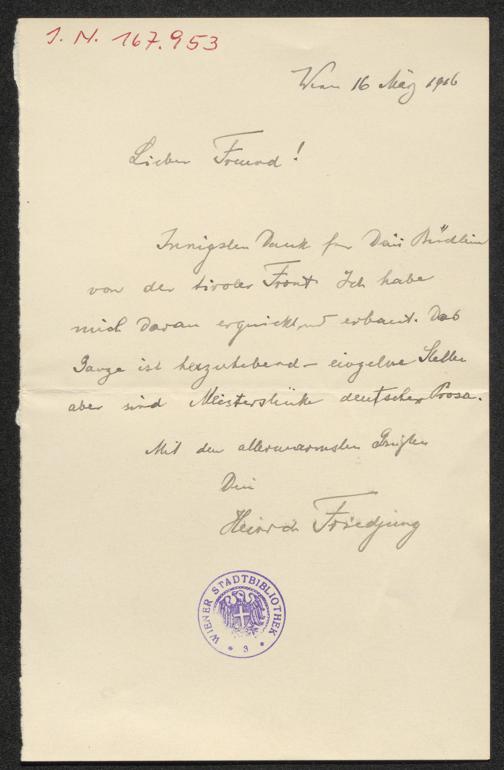 J. N. 167.953
Wien 16 März 1916
Lieber Freund!
Innigsten Dank für Dein Büchlein
von der tiroler Front. Ich habe
mich daran erquickt und erbaut. Das
Ganze ist herzerhebend – einzelne Stellen
aber sind Meisterstücke deutscher Prosa.
Mit den allerwärmsten Grüßen
Dein
Heinrich Friedjung
WIENER STADTBIBLIOTHEK
* 3 *